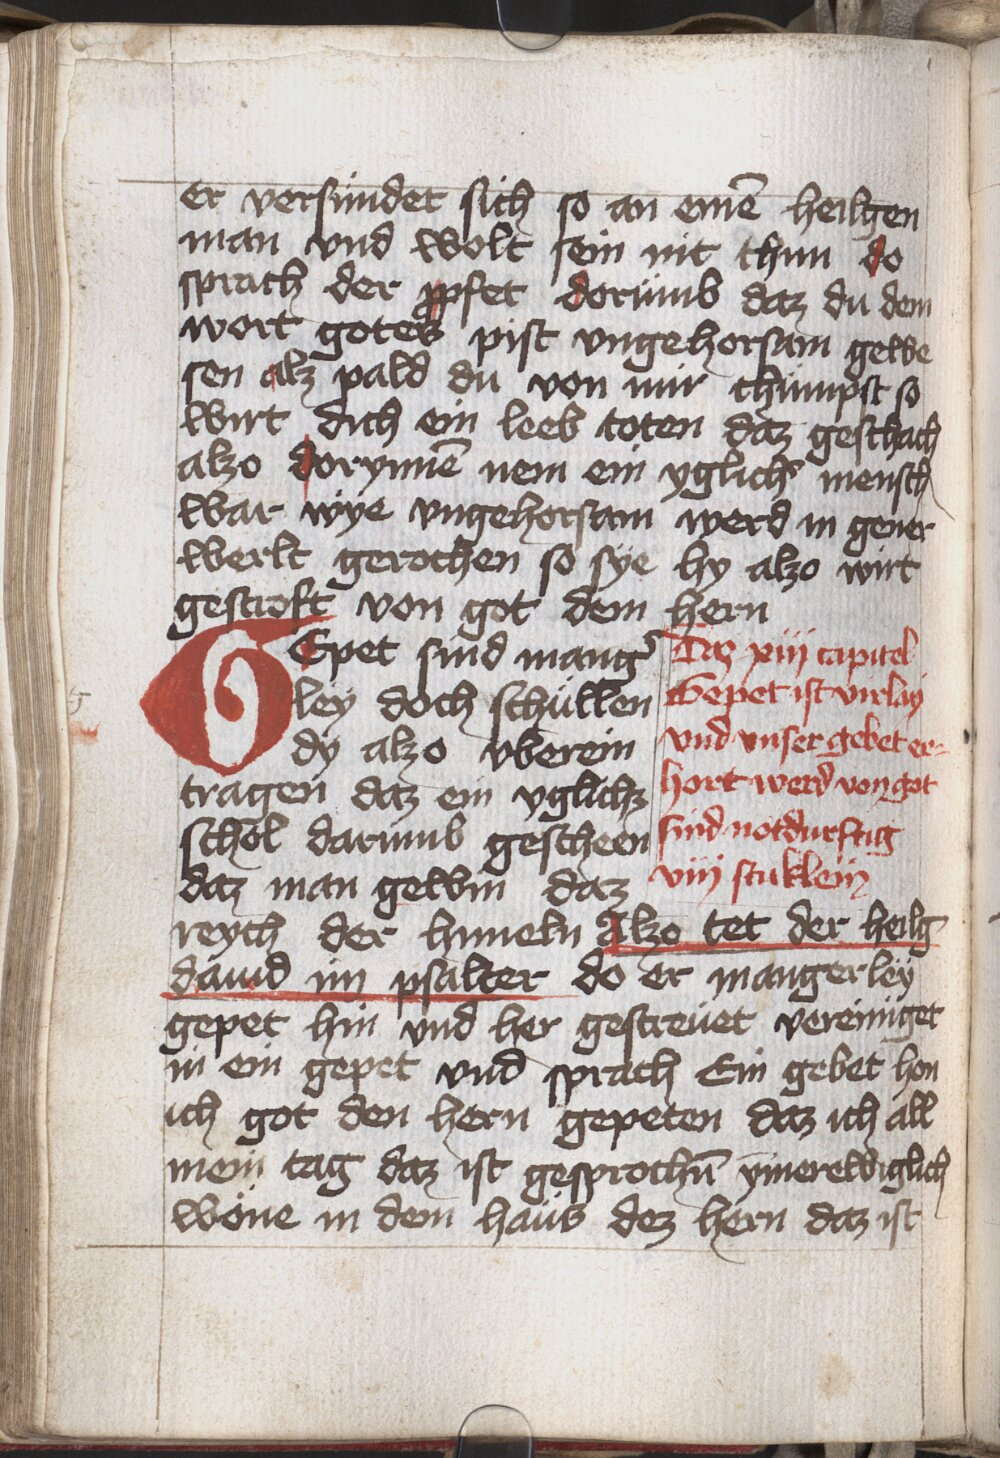 er versundet sich so an eine͂ heilgen
man vnd wolt sein nit thun do
sprach der ꝓpfet dorumb daz du dem
wort gotes pist vngehorsam gewe
sen alz pald du von mir chumpst so
wirt dich ein leeb toten daz geschach
alzo dorynne͂ nem ein yglichs mensch
war wye vngehorsam werd in gener
werlt gerochen so sye hy alzo wirt
gestroft von got dem hern
GEpet sind mang᾽
ley doch schüllen
dy alzo vberein
tragen daz ein yglichz
schol darumb gescheen
daz man gewin daz
Daz xiij capitel
Gepet ist virlaij
vnd vnser gebet er-
hort werd von got
sind notdurftig
viij stuklein
reych der himeln Alzo tet der heilg
dauid im psalter do er mangerley
gepet hin vnd her gestreuet vereiniget
in ein gepet vnd sprach Ein gebet hon
ich got den hern gepeten daz ich all
mein tag daz ist gesprochn̄ ymerewiglich
wone in dem haus dez hern daz ist